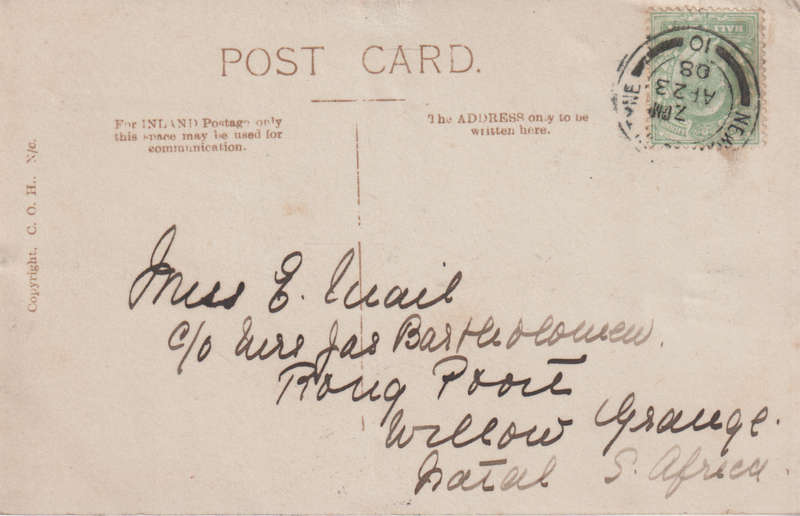 POST CARD.
For INLAND Postage only
this space may be used for
communication.
The ADDRESS only to be
written here.
Copyright. C. O. H., N/c.
10
08
AP 23
Miss E.
c/o Mrs Jas Bartholomew.
Poort
Willow Grange.
Natal S. Africa.